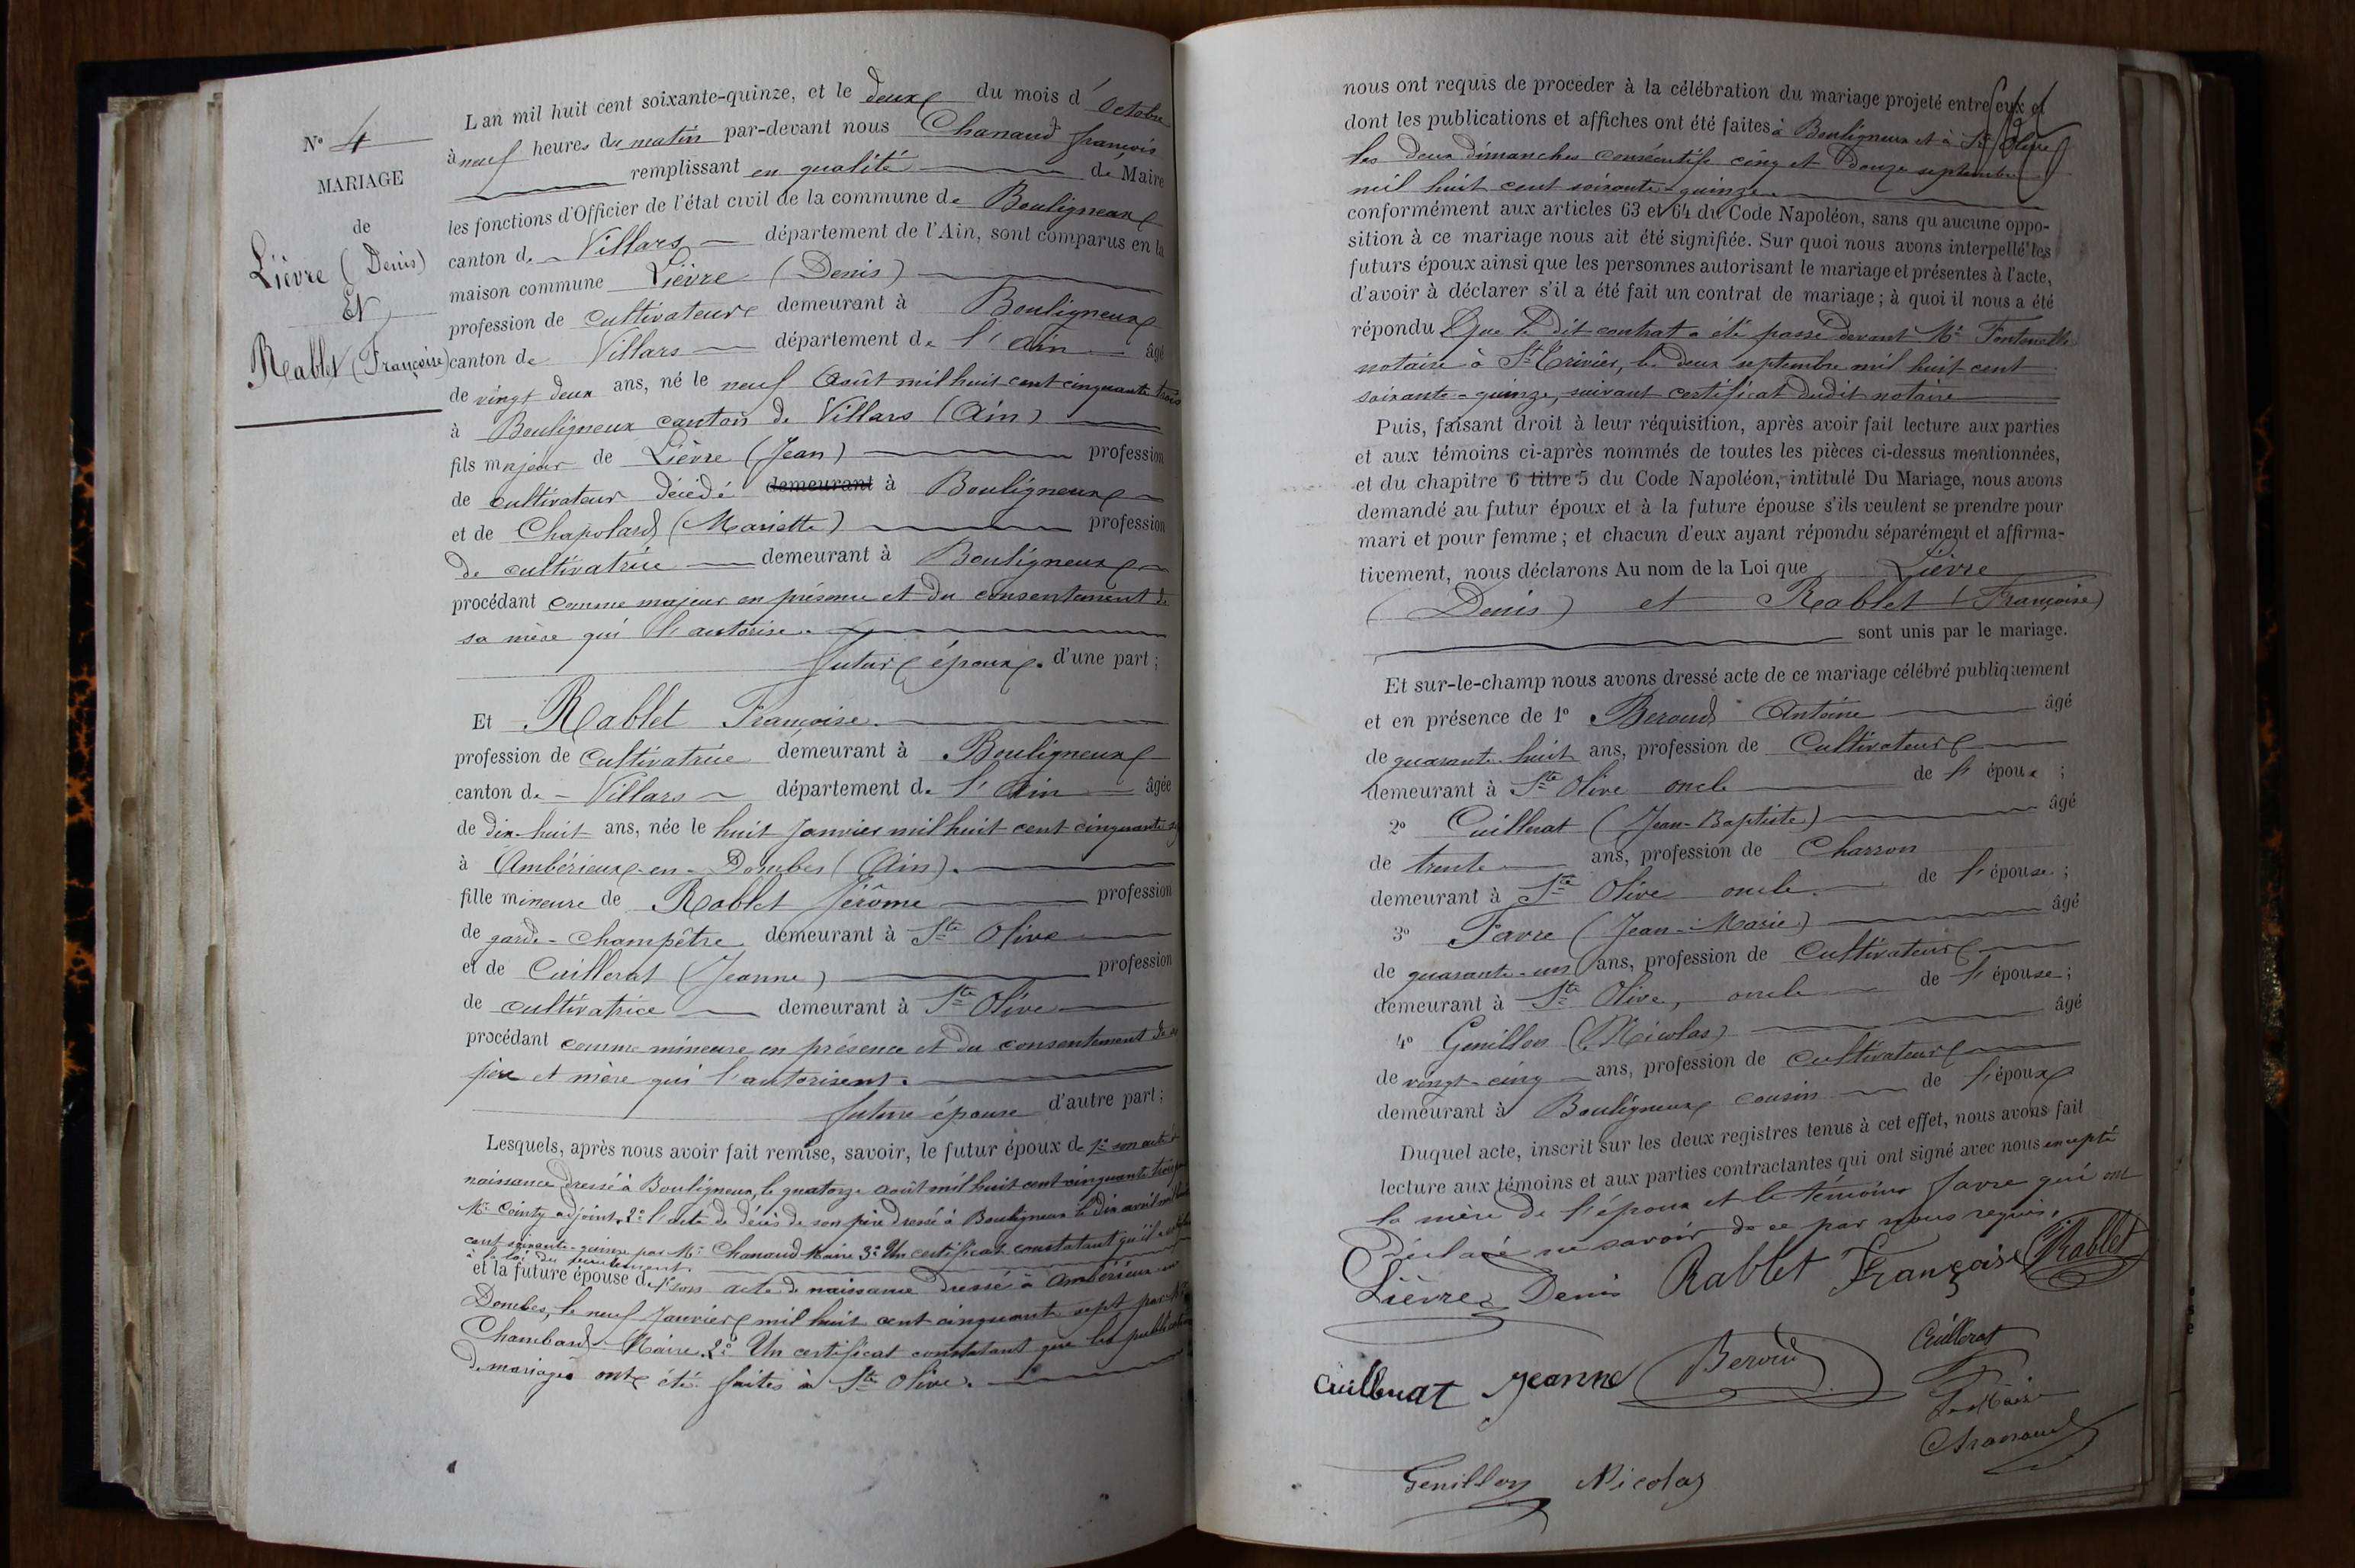 N° 4
MARIAGE
de
Lièvre (Denis)
Et
Rablet (Françoise)
L'an mil huit cent soixante-quinze, et le deux du mois d'Octobre
à neuf heures du matin par-devant nous Chanaud François
remplissant en qualité de Maire
les fonctions d'Officier de l'état civil de la commune de Bouligneux
canton de Villars département de l'Ain, sont comparus en la
maison commune Lièvre (Denis)
profession de cultivateur demeurant à Bouligneux
canton de Villars département de l'Ain âgé
de vingt deux ans, né le neuf Août mil huit cent cinquante trois
à Bouligneux canton de Villars (Ain)
fils majeur de Lièvre (Jean) profession
de cultivateur décédé demeurant à Bouligneux
et de Chapolard (Mariette) profession
de cultivatrice demeurant à Bouligneux
procédant comme majeur en présence et du consentement de
sa mère qui l'autorise.
futur époux. d'une part;
Et Rablet Françoise.
profession de cultivatrice demeurant à Bouligneux
canton de Villars département de l'Ain âgée
de dix-huit ans, née le huit Janvier mil huit cent cinquante
à Ambérieux-en-Dombes (Ain).
fille mineure de Rablet Jérôme profession
de garde-Champêtre demeurant à Ste Olive
et de Cuillerat (Jeanne) profession
de cultivatrice demeurant à Ste Olive
procédant comme mineure en présence et du consentement de
père et mère qui l'autorisent.
future épouse d'autre part;
Lesquels, après nous avoir fait remise, savoir, le futur époux de 1° son acte de
naissance dressé à Bouligneux, le quatorze août mil huit cent cinquante trois
Mr Cointy adjoint, 2° l'acte de décès de son père dressé à Bouligneux le dix avril mil
cent soixante-quinze par Mr Chanaud Maire 3° Un certificat constatant qu'il a
à la loi du recrutement.
et la future épouse de 1° son acte de naissance dressé à Ambérieux en
Dombes, le neuf Janvier mil huit cent cinquante sept par Mr
Chambard Maire. 2° Un certificat constatant que les publications
de mariage ont été faites à Ste Olive.
nous ont requis de procéder à la célébration du mariage projeté entre eux et
dont les publications et affiches ont été faites à Bouligneux et à Ste Olive
les deux dimanches consécutifs cinq et douze septembre
mil huit cent soixante-quinze
conformément aux articles 63 et 64 du Code Napoléon, sans qu'aucune oppo-
sition à ce mariage nous ait été signifiée. Sur quoi nous avons interpellé les
futurs époux ainsi que les personnes autorisant le mariage et présentes à l'acte,
d'avoir à déclarer s'il a été fait un contrat de mariage; à quoi il nous a été
répondu Que le dit contrat a été passé devant Me Fontenelle
notaire à St Trivier, le deux septembre mil huit cent
soixante-quinze, suivant certificat dudit notaire
Puis, faisant droit à leur réquisition, après avoir fait lecture aux parties
et aux témoins ci-après nommés de toutes les pièces ci-dessus mentionnées,
et du chapitre 6 titre 5 du Code Napoléon, intitulé Du Mariage, nous avons
demandé au futur époux et à la future épouse s'ils veulent se prendre pour
mari et pour femme; et chacun d'eux ayant répondu séparément et affirma-
tivement, nous déclarons Au nom de la Loi que Lièvre
(Denis) et Rablet (Françoise)
sont unis par le mariage.
Et sur-le-champ nous avons dressé acte de ce mariage célébré publiquement
et en présence de 1° Beroud Antoine âgé
de quarante-huit ans, profession de Cultivateur
demeurant à Ste Olive oncle de l'époux;
2° Cuillerat (Jean-Baptiste) âgé
de trente ans, profession de Charron
demeurant à Ste Olive oncle de l'épouse;
3° Favre (Jean-Marie) âgé
de quarante-un ans, profession de Cultivateur
demeurant à Ste Olive, oncle de l'épouse;
4° Genillon (Nicolas) âgé
de vingt-cinq ans, profession de cultivateur
demeurant à Bouligneux cousin de l'époux
Duquel acte, inscrit sur les deux registres tenus à cet effet, nous avons fait
lecture aux témoins et aux parties contractantes qui ont signé avec nous excepté
la mère de l'époux et le témoins Favre qui ont
Déclaré ne savoir de ce par nous requis.
Lièvre Denis Rablet Françoise Rablet
Cuillerat Jeanne Beroud Cuillerat
Le Maire
Chanaud
Genillon Nicolas